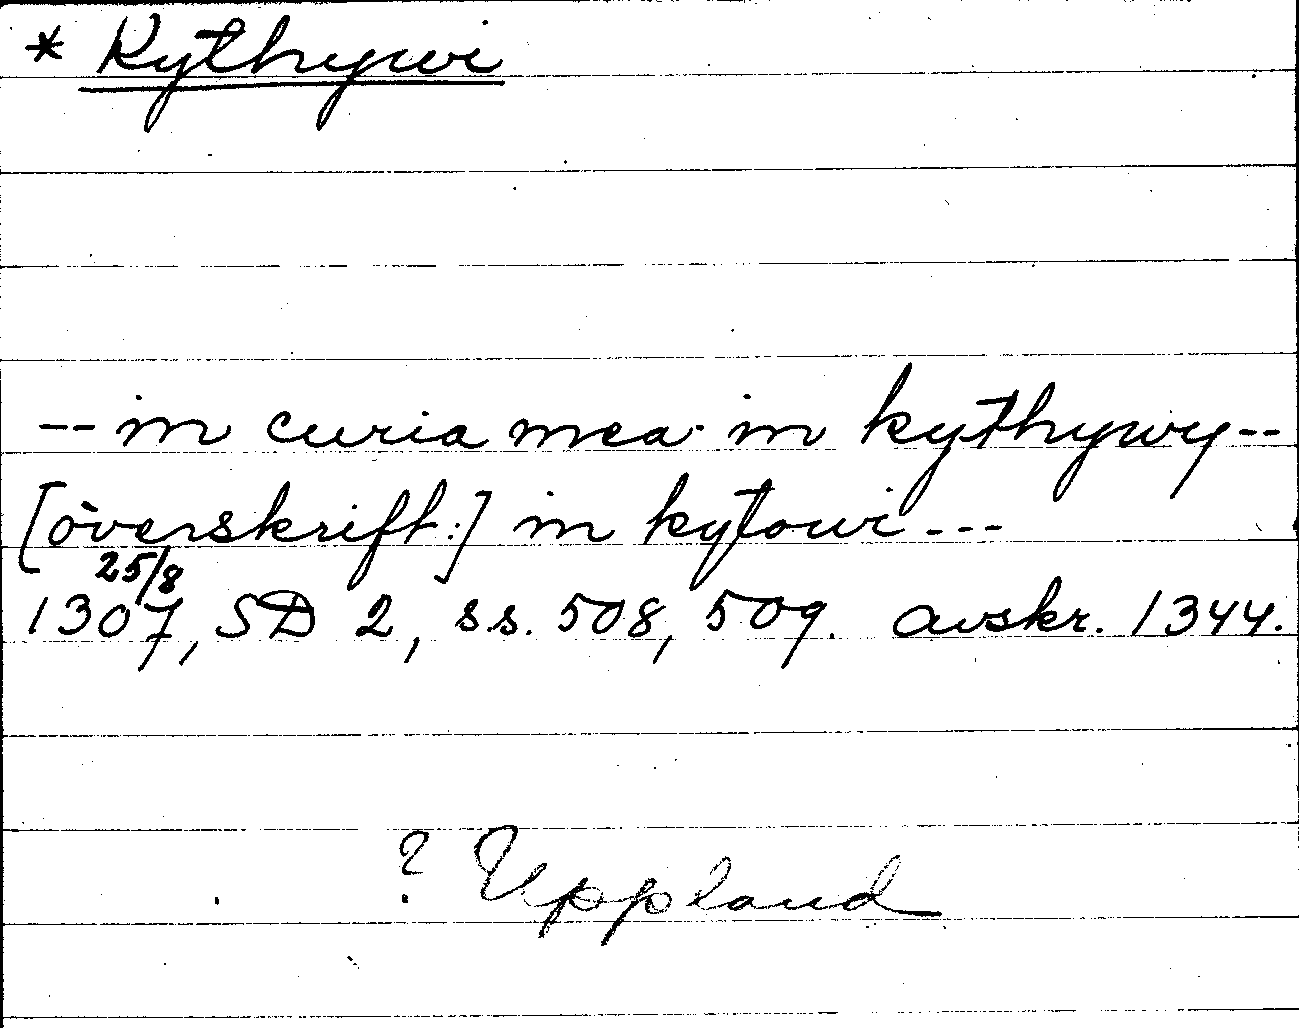 * Kythywi
-- in curia mea in kythywy --
[överskrift:] in kytowi ---
25/8
1307, SD 2, ss. 508, 509. avskr. 1344.
? Uppland